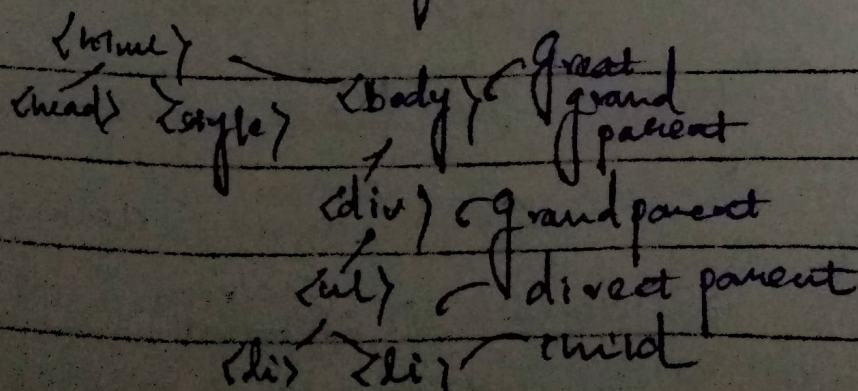 <html>
<head> <style> <body> great grand parent
<div> grand parent
<ul> direct parent
<li> <li> child